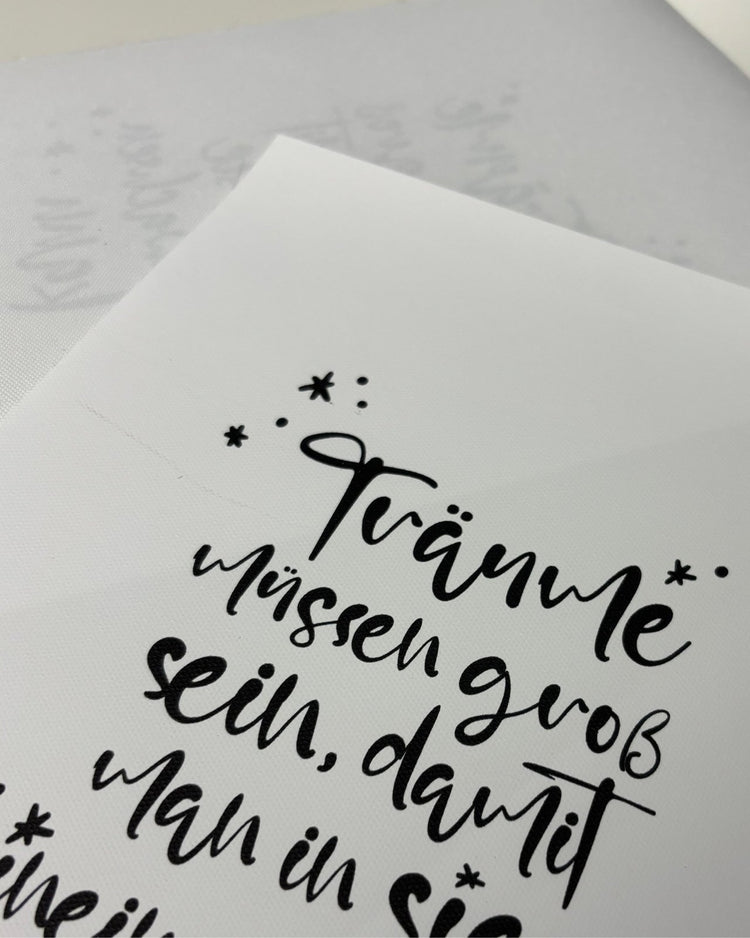 Träume
müssen groß
sein, damit
man in sie